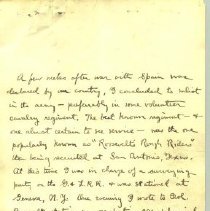 A few weeks after war with Spain was
declared by our country, I concluded to enlist
in the army — preferably in some volunteer
cavalry regiment. The best known regiment — &
one almost certain to see service — was the one
popularly known as "Roosevelt's Rough Riders"
then being recruited at San Antonio, Texas.
At this time I was in charge of a surveying
party on the R.R. & was stationed at
Geneva, N.Y. One evening I wrote to Col.